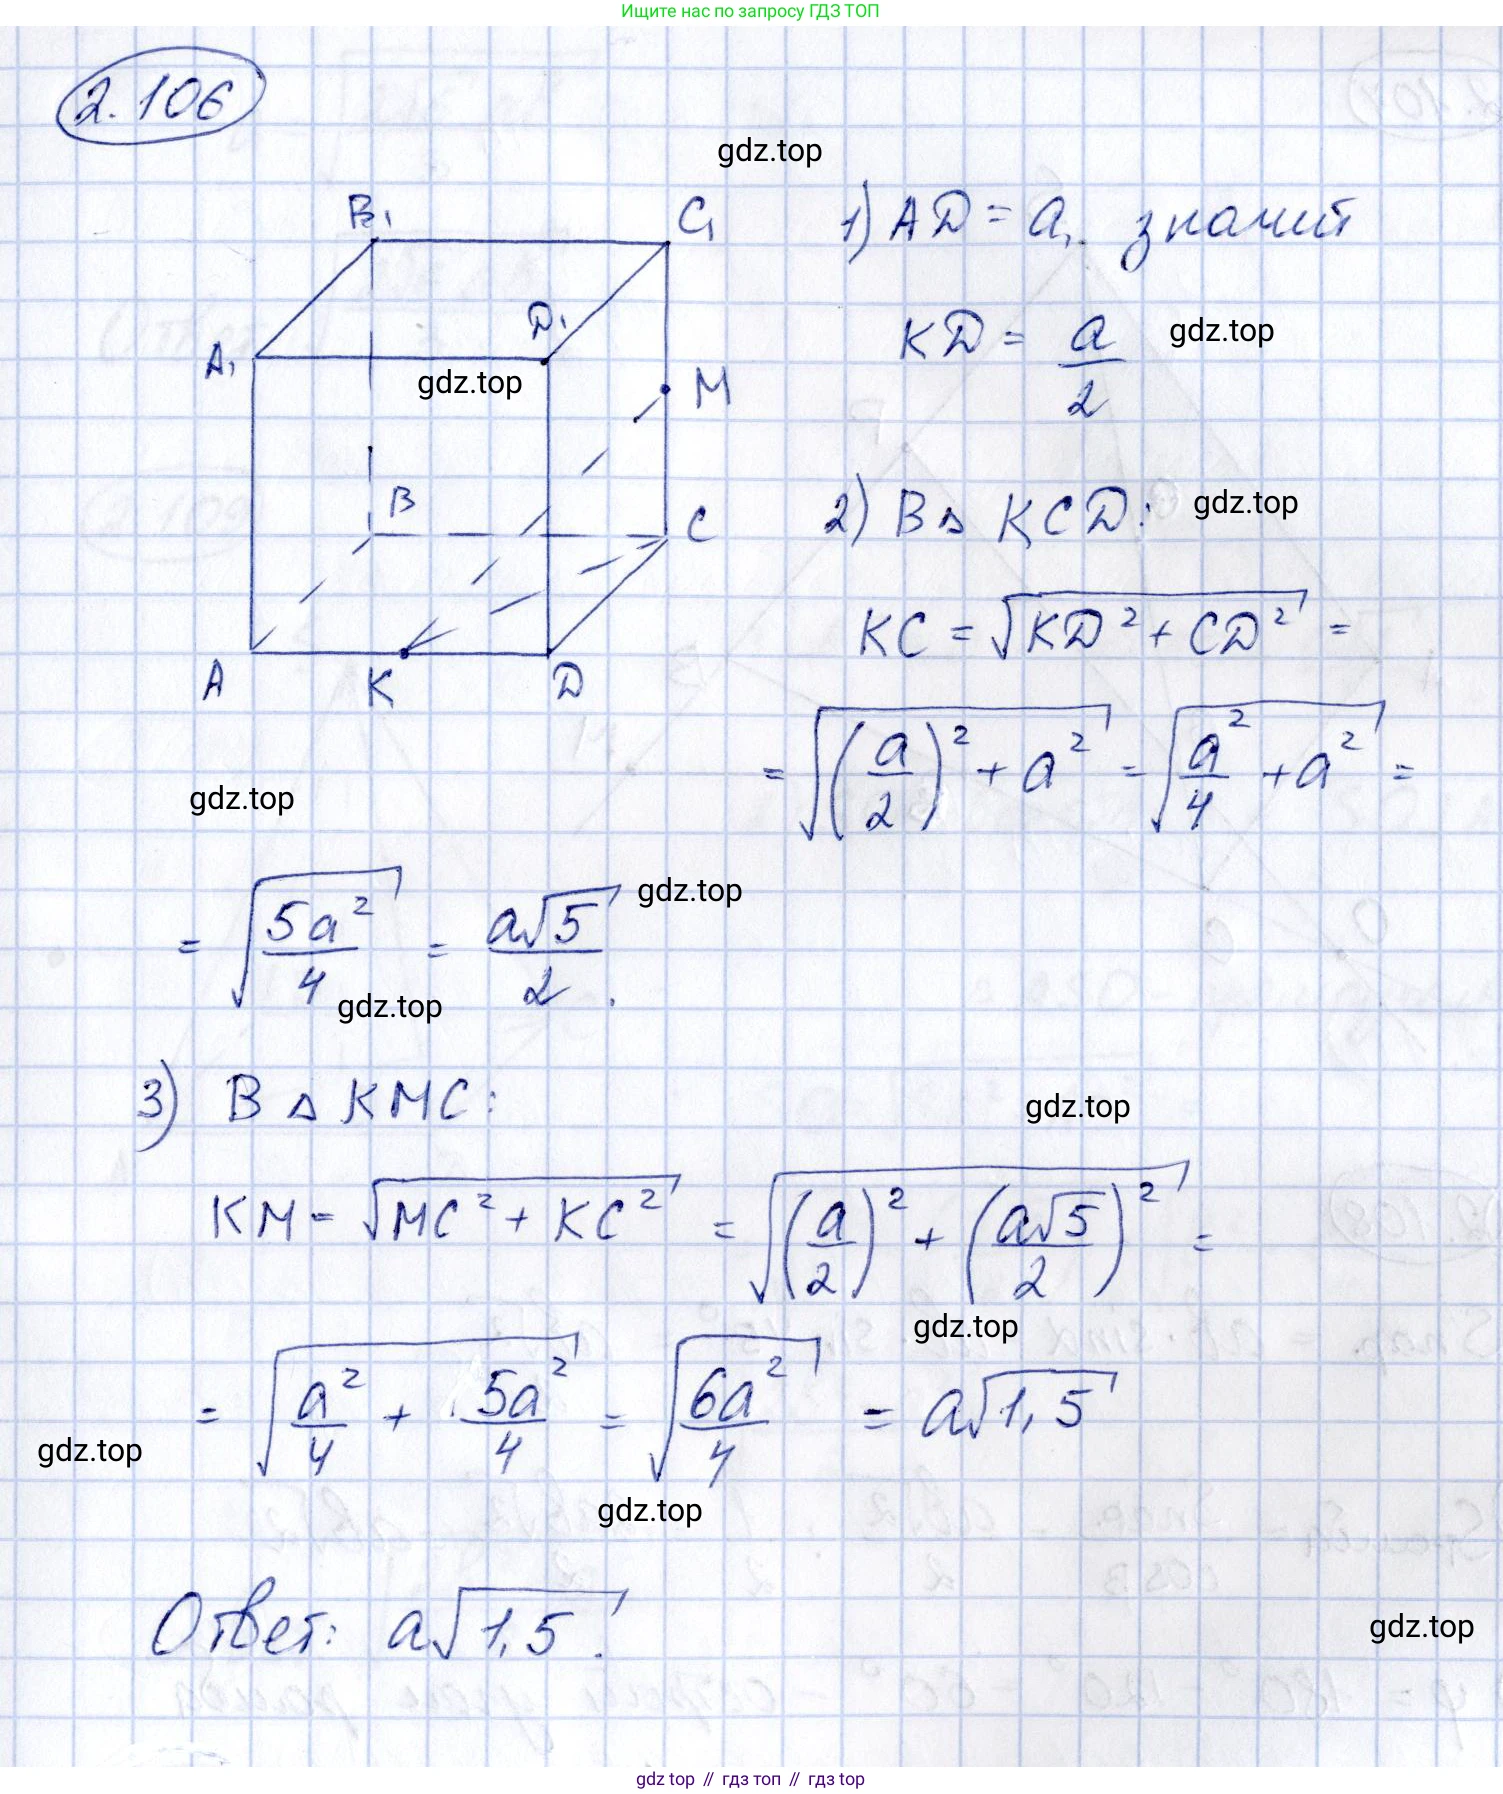 Ищите нас по запросу ГДЗ ТОП
2.106
gdz.top
B₁
C₁
1) AD = a, значит
D₁
KD = a/2
gdz.top
A₁
gdz.top
M
B
C
2) В △ KCD:
gdz.top
KC = √(KD² + CD²) =
A
K
D
= √((a/2)² + a²) = √(a²/4 + a²) =
gdz.top
= √(5a²/4) = a√5/2.
gdz.top
gdz.top
3) В △ KMC:
gdz.top
KM = √(MC² + KC²) = √((a/2)² + (a√5/2)²) =
gdz.top
= √(a²/4 + 5a²/4) = √(6a²/4) = a√1,5
gdz.top
gdz.top
Ответ: a√1,5.
gdz.top
gdz top // гдз топ // гдз top